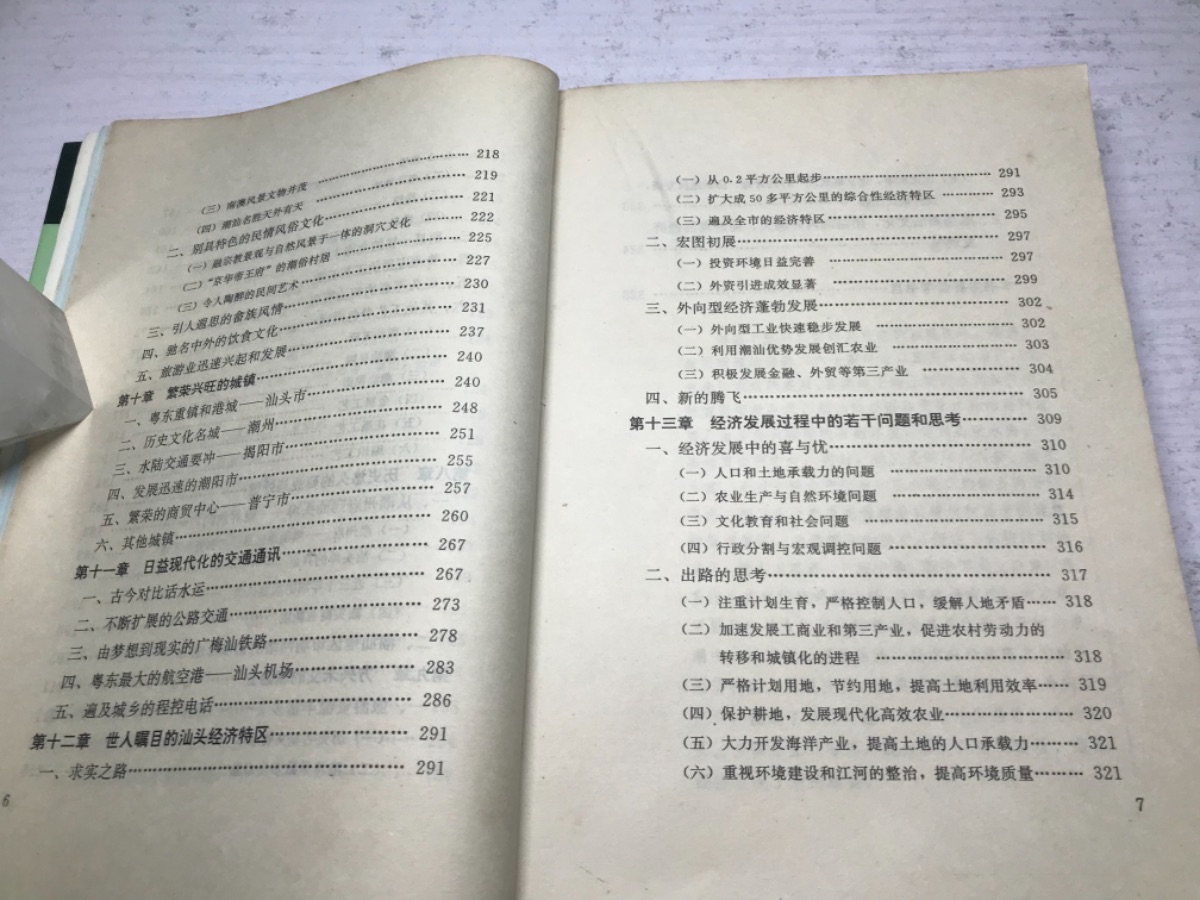 (三) 南澳风景文物并茂 …… 218
(四) 潮汕名胜天外有天 …… 219
二、别具特色的民情风俗文化 …… 221
(一) 融宗教景观与自然风景于一体的洞穴文化 …… 222
(二) “京华帝王府”的潮俗村居 …… 225
(三) 令人陶醉的民间艺术 …… 227
三、引人遐思的畲族风情 …… 230
四、驰名中外的饮食文化 …… 231
五、旅游业迅速兴起和发展 …… 237
第十章 繁荣兴旺的城镇 …… 240
一、粤东重镇和港城——汕头市 …… 240
二、历史文化名城——潮州 …… 248
三、水陆交通要冲——揭阳市 …… 251
四、发展迅速的潮阳市 …… 255
五、繁荣的商贸中心——普宁市 …… 257
六、其他城镇 …… 260
第十一章 日益现代化的交通通讯 …… 267
一、古今对比话水运 …… 267
二、不断扩展的公路交通 …… 273
三、由梦想到现实的广梅汕铁路 …… 278
四、粤东最大的航空港——汕头机场 …… 283
五、遍及城乡的程控电话 …… 286
第十二章 世人瞩目的汕头经济特区 …… 291
一、求实之路 …… 291
6
(一) 从0.2平方公里起步 …… 291
(二) 扩大成50多平方公里的综合性经济特区 …… 293
(三) 遍及全市的经济特区 …… 295
二、宏图初展 …… 297
(一) 投资环境日益完善 …… 297
(二) 外资引进成效显著 …… 299
三、外向型经济蓬勃发展 …… 302
(一) 外向型工业快速稳步发展 …… 302
(二) 利用潮汕优势发展创汇农业 …… 303
(三) 积极发展金融、外贸等第三产业 …… 304
四、新的腾飞 …… 305
第十三章 经济发展过程中的若干问题和思考 …… 309
一、经济发展中的喜与忧 …… 310
(一) 人口和土地承载力的问题 …… 310
(二) 农业生产与自然环境问题 …… 314
(三) 文化教育和社会问题 …… 315
(四) 行政分割与宏观调控问题 …… 316
二、出路的思考 …… 317
(一) 注重计划生育，严格控制人口，缓解人地矛盾 …… 318
(二) 加速发展工商业和第三产业，促进农村劳动力的
转移和城镇化的进程 …… 318
(三) 严格计划用地，节约用地，提高土地利用效率 …… 319
(四) 保护耕地，发展现代化高效农业 …… 320
(五) 大力开发海洋产业，提高土地的人口承载力 …… 321
(六) 重视环境建设和江河的整治，提高环境质量 …… 321
7